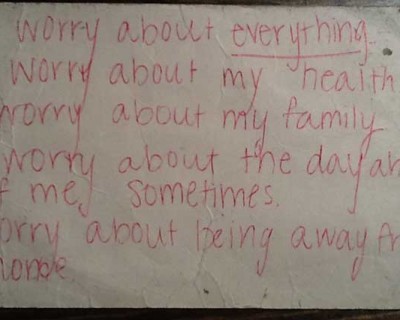 worry about everything.
worry about my health
worry about my family
worry about the day
me, sometimes.
worry about being away
home